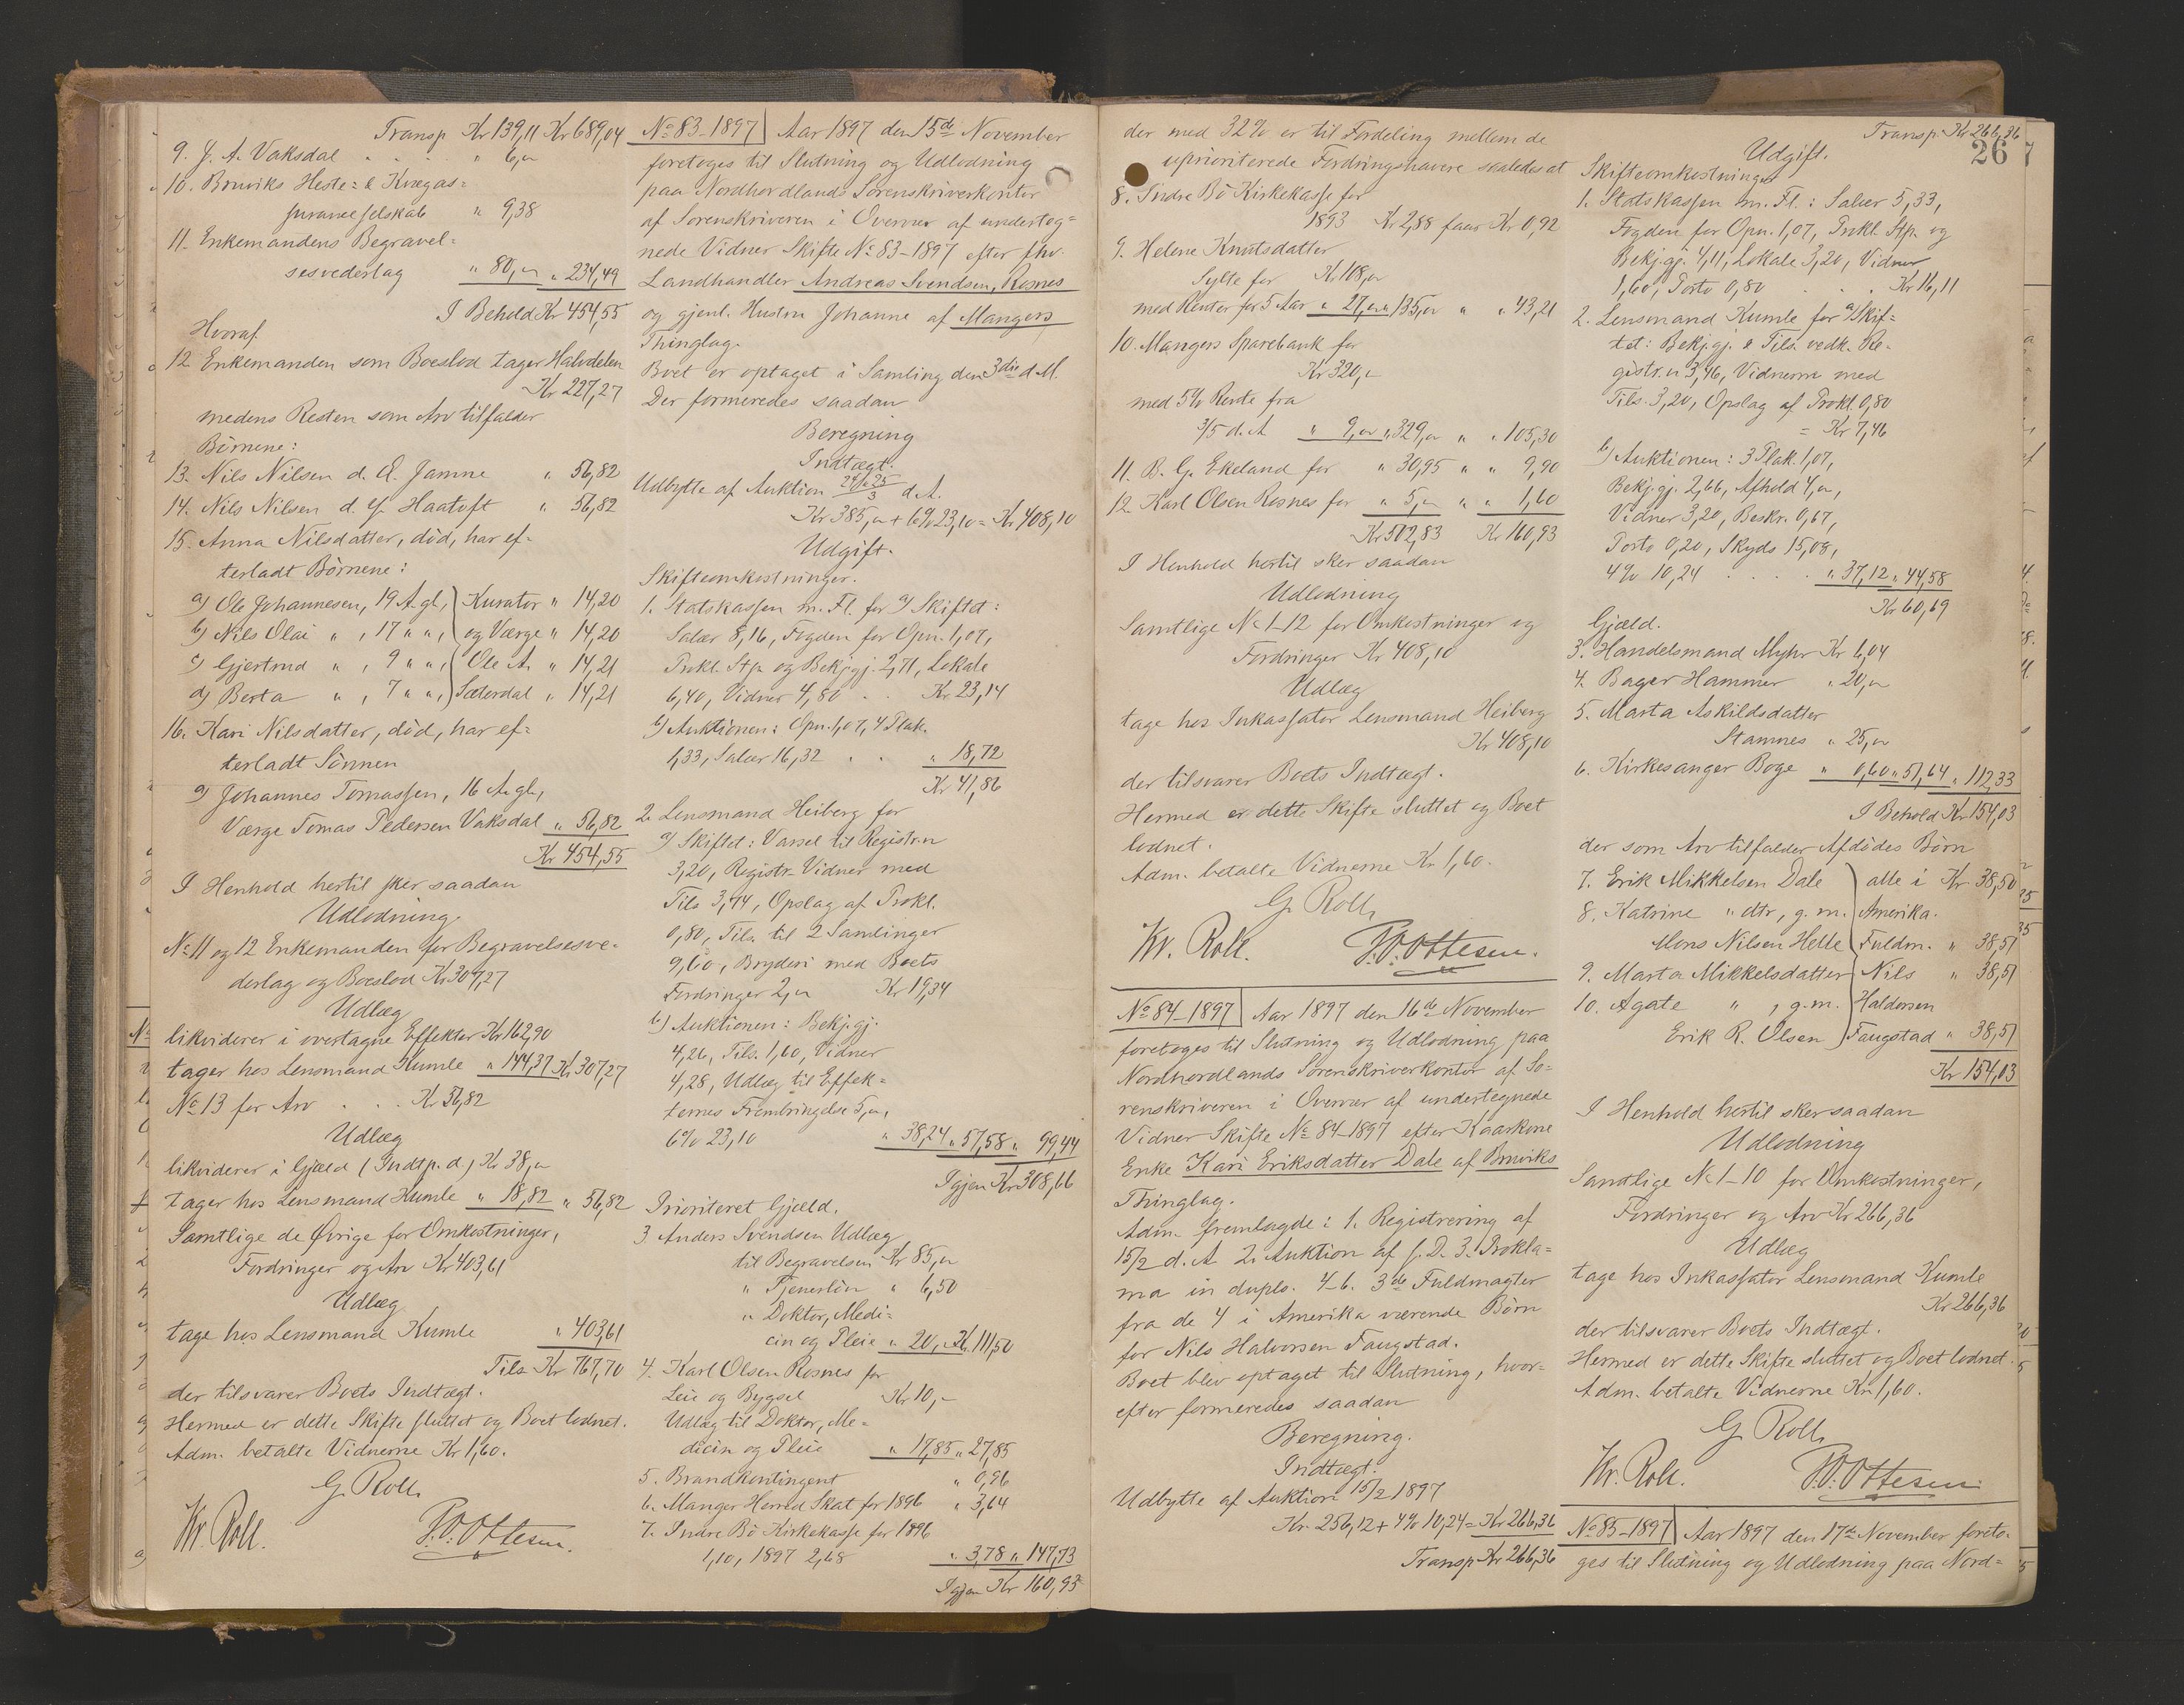 Transp. Kr 139,11 Kr 689,04
9. J. A. Vaksdal " " 6,"
10. Bruviks Heste= & Kvægas=
suranceselskab " 9,38
11. Enkemandens Begravel=
sesvederlag " 80,- " 234,49
I Behold Kr 454,55
Hvoraf
12. Enkemanden som Boeslod tager Halvdelen
Kr 227,27
medens Resten som Arv tilfalder
Børnene:
13. Nils Nilsen d. Æ. Jamne " 56,82
14. Nils Nilsen d. y. Haatoft " 56,82
15. Anna Nilsdatter, død, har ef=
terladt Børnene:
a) Ole Johannesen, 19 A. gl., Kurator " 14,20
b) Nils Olai " , 17 " " , og Værge " 14,20
c) Gjertrud " , 9 " " , Ole A. " 14,21
d) Berta " , 7 " " , Sæterdal " 14,21
16. Kari Nilsdatter, død, har ef=
terladt Sønnen
a) Johannes Tomassen, 16 A. gl.,
Værge Tomas Pedersen Vaksdal " 56,82
Kr 454,55
I Henhold hertil sker saadan
Udlodning.
No 11 og 12 Enkemanden for Begravelsesve=
derlag og Boeslod Kr 307,27
Udlæg
likviderer i overtagne Effekter Kr 162,90
tager hos Lensmand Kumle " 144,37 Kr 307,27
No 13 for Arv . . . Kr 56,82
Udlæg
likviderer i Gjæld (Indtp. d) Kr 38,"
tager hos Lensmand Kumle " 18,82 " 56,82
Samtlige de Øvrige for Omkostninger,
Fordringer og Arv Kr 403,61
Udlæg
tage hos Lensmand Kumle " 403,61
Tils. Kr 767,70
der tilsvarer Boets Indtægt.
Hermed er dette Skifte sluttet og Boet lodnet.
Adm. betalte Vidnerne Kr 1,60.
G. Roll
Kr. Roll. P.O. Ottesen.
No 83-1897 Aar 1897 den 15de November
foretoges til Slutning og Udlodning
paa Nordhordlands Sorenskriverkontor
af Sorenskriveren i Overvær af underteg=
nede Vidner Skifte No 83-1897 efter fhv.
Landhandler Andreas Svendsen, Rosnes
og gjenl. Hustru Johanne af Mangers
Thinglag.
Boet er optaget i Samling den 3die d. M.
Der formeredes saadan
Beregning
Indtægt.
Udbytte af Auktion 24 & 25/3 d. A.
Kr 385,- + 6% 23,10 = Kr 408,10
Udgift.
Skifteomkostninger.
1. Statskassen m. Fl. for a) Skiftet:
Salær 8,16, Fogden for Opn. 1,07,
Prokl. Stp. og Bekjgj. 2,71, Lokale
6,40, Vidner 4,80 . . Kr 23,14
b) Auktionen: Opn. 1,07, 4 Plak.
1,33, Salær 16,32 . . " 18,72
Kr 41,86
2. Lensmand Heiberg for
a) Skiftet: Varsel til Registr.n
3,20, Registr. Vidner med
Tils. 3,74, Opslag af Prokl.
0,80, Tils. til 2 Samlinger
9,60, Bryderi med Boets
Fordringer 2,- Kr 19,34
b) Auktionen: Bekj.gj.
4,26, Tils. 1,60, Vidner
4,28, Udlæg til Effek=
ternes Frembringelse 5,-,
6% 23,10 " 38,24 " 57,58 " 99,44
Igjen Kr 308,66
Prioriteret Gjæld.
3. Anders Svendsen Udlæg
til Begravelsen Kr 85,-
" Tjenerløn " 6,50
" Doktor, Medi=
cin og Pleie " 20,- Kr. 111,50
4. Karl Olsen Rosnes for
Leie og Bygsel Kr 10,-
Udlæg til Doktor, Me=
dicin og Pleie " 17,85 " 27,85
5. Brandkontingent " 0,96
6. Manger Herred Skat for 1896 " 3,64
7. Indre Bø Kirkekasse for 1896
1,10, 1897 2,68 " 3,78 " 147,73
Igjen Kr 160,93
der med 32% er til Fordeling mellem de
uprioriterede Fordringshavere saaledes at
8. Indre Bø Kirkekasse for
1893 Kr 2,88 faar Kr 0,92
9. Helene Knutsdatter
Sylte for Kr 108,-
med Renter for 5 Aar " 27,- " 135,- " " 43,21
10. Mangers Sparebank for
Kr 320,-
med 5% Rente fra
3/5 d. A. " 9,- " 329,- " " 105,30
11. B. G. Ekeland for " 30,95 " " 9,90
12. Karl Olsen Rosnes for " 5,- " " 1,60
Kr 502,83 Kr 160,93
I Henhold hertil sker saadan
Udlodning
Samtlige No 1-12 for Omkostninger og
Fordringer Kr 408,10
Udlæg
tage hos Inkassator Lensmand Heiberg
Kr 408,10
der tilsvarer Boets Indtægt.
Hermed er dette Skifte sluttet og Boet
lodnet.
Adm. betalte Vidnerne Kr 1,60.
G. Roll
Kr. Roll. P.O. Ottesen.
No 84-1897 Aar 1897 den 16de November
foretoges til Slutning og Udlodning paa
Nordhordlands Sorenskriverkontor af So=
renskriveren i Overvær af undertegnede
Vidner Skifte No 84-1897 efter Kaarkone
Enke Kari Eriksdatter Dale af Bruviks
Thinglag.
Adm. fremlagde: 1. Registrering af
15/2 d. A. 2. Auktion af s. D. 3. Prokla=
ma in duplo. 4-6. 3de Fuldmagter
fra de 4 i Amerika værende Børn
for Nils Halvorsen Faugstad.
Boet blev optaget til Slutning, hvor=
efter formeredes saadan
Beregning.
Indtægt.
Udbytte af Auktion 15/2 1897
Kr. 256,12 + 4% 10,24 = Kr 266,36
Transp. Kr 266,36
Transp. Kr 266,36
26
Udgift.
Skifteomkostninger
1. Statskassen m. Fl.: Salær 5,33,
Fogden for Opn. 1,07, Prokl. Stp. og
Bekj.gj. 4,11, Lokale 3,20, Vidner
1,60, Porto 0,80 . . . Kr 16,11
2. Lensmand Kumle for a) Skif=
tet: Bekj.gj. & Tils. vedk. Re=
gistr.n 3,46, Vidnerne med
Tils. 3,20, Opslag af Prokl. 0,80
= Kr 7,46
b) Auktionen: 3 Plak. 1,07,
Bekj.gj. 2,66, Afhold 4,-,
Vidner 3,20, Beskr. 0,67,
Porto 0,20, Skyds 15,08,
4% 10,24 . . . . " 37,12 " 44,58
Kr 60,69
Gjæld.
3. Handelsmand Myhr Kr 6,04
4. Bager Hammer " 20,-
5. Marta Askildsdatter
Stamnes " 25,-
6. Kirkesanger Boge " 0,60 " 51,64 " 112,33
I Behold Kr 154,03
der som Arv tilfalder Afdødes Børn
7. Erik Mikkelsen Dale alle i Kr 38,50
8. Katrine " dtr, g. m. Amerika.
Mons Nilsen Helle Fuldm. " 38,51
9. Marta Mikkelsdatter Nils " 38,51
10. Agate " , g. m. Haldorsen
Erik R. Olsen Faugstad " 38,51
Kr 154,03
I Henhold hertil sker saadan
Udlodning
Samtlige No 1-10 for Omkostninger,
Fordringer og Arv Kr 266,36
Udlæg
tage hos Inkassator Lensmand Kumle
Kr 266,36
der tilsvarer Boets Indtægt.
Hermed er dette Skifte sluttet og Boet lodnet.
Adm. betalte Vidnerne Kr 1,60.
G. Roll
Kr. Roll. P.O. Ottesen
No 85-1897 Aar 1897 den 17de November foreto=
ges til Slutning og Udlodning paa Nord=